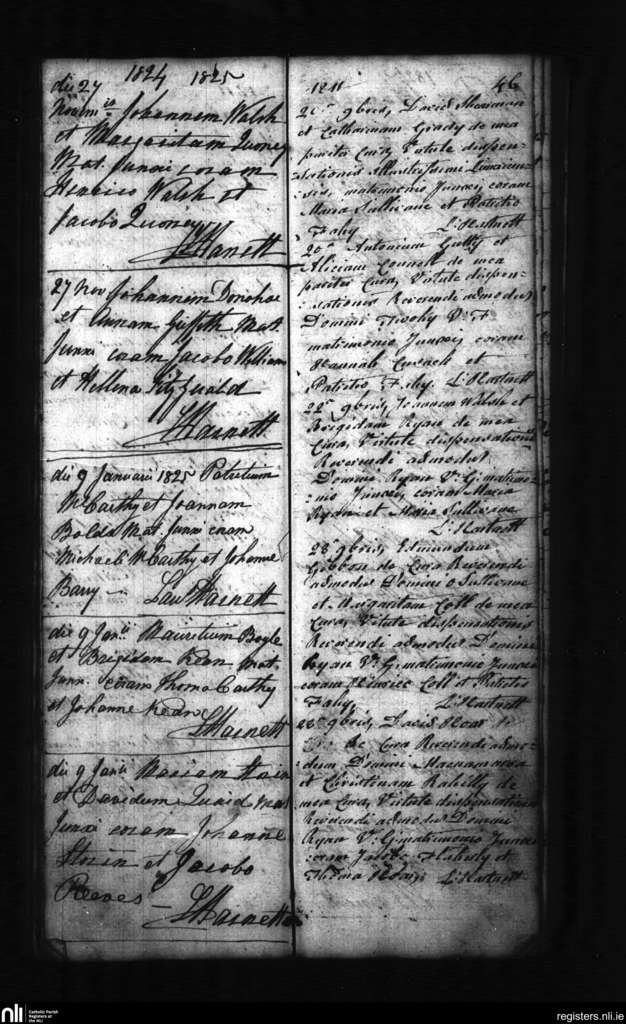 1824 1825
die 27
Novem Johannem Walsh
et Margaritam Quoney
Mat. Junxi coram
Henrico Walsh et
Jacobo Quoney
L Harnett
27 Nov Johannem Donohoe
et Annam Griffith Mat.
Junxi coram Jacobo William
et Hellena Fitzgerald
L Harnett
die 9 Januarii 1825 Patritium
McCarthy et Joannam
Bolds Mat. Junxi coram
Michaele McCarthy et Johanne
Barry Laus Harnett
die 9 Janii Mauritium Boyle
et Brigidam Kean Mat.
Junxi coram Thoma Carthy
et Johanne Keane
L Harnett
die 9 Janii Mariam
et Davidum Quaid Mat
Junxi coram Johanne
et Jacobo
Reeves
L Harnett
46
9bris, David
et Catharinam Grady de mea
pariter Cura, Virtute dispen-
sationis Illustrissimi Limericen-
sis, matrimonio Junxi, coram
Maria Sullivane et Patritio
Fahy L. Hartnett
20a Antonium et
Aliciam Connell de mea
pariter Cura, Virtute dispen-
sationis Reverendi admodum
Domini V: F
matrimonio Junxi, coram
Hannah et
Patritio Fahy. L. Hartnett
22a 9bris, Joannem Walsh et
Brigidam Ryan de mea
Cura, Virtute dispensationis
Reverendi admodum
Domini Ryan V: G: matrimo-
nio Junxi, coram Maria
Ryan et Maria Sullivane
L. Hartnett
28a 9bris, Edmundum
Gibbon de Cura Reverendi
admodum Domini O Sullivane
et Margaritam Coll de mea
Cura, Virtute dispensationis
Reverendi admodum Domini
Ryan V: G: matrimonio Junxi
coram Henrico Coll et Patritio
Fahy, L. Hartnett
28a 9bris, David
de Cura Reverendi admo-
dum Domini Macnamara
et Christinam Rahilly de
mea Cura, Virtute dispensationis
Reverendi admodum Domini
Ryan V: G: matrimonio Junxi
coram Jacobo Flaherty et
Thoma L. Hartnett
nli
Catholic Parish
Registers at
the NLI
registers.nli.ie